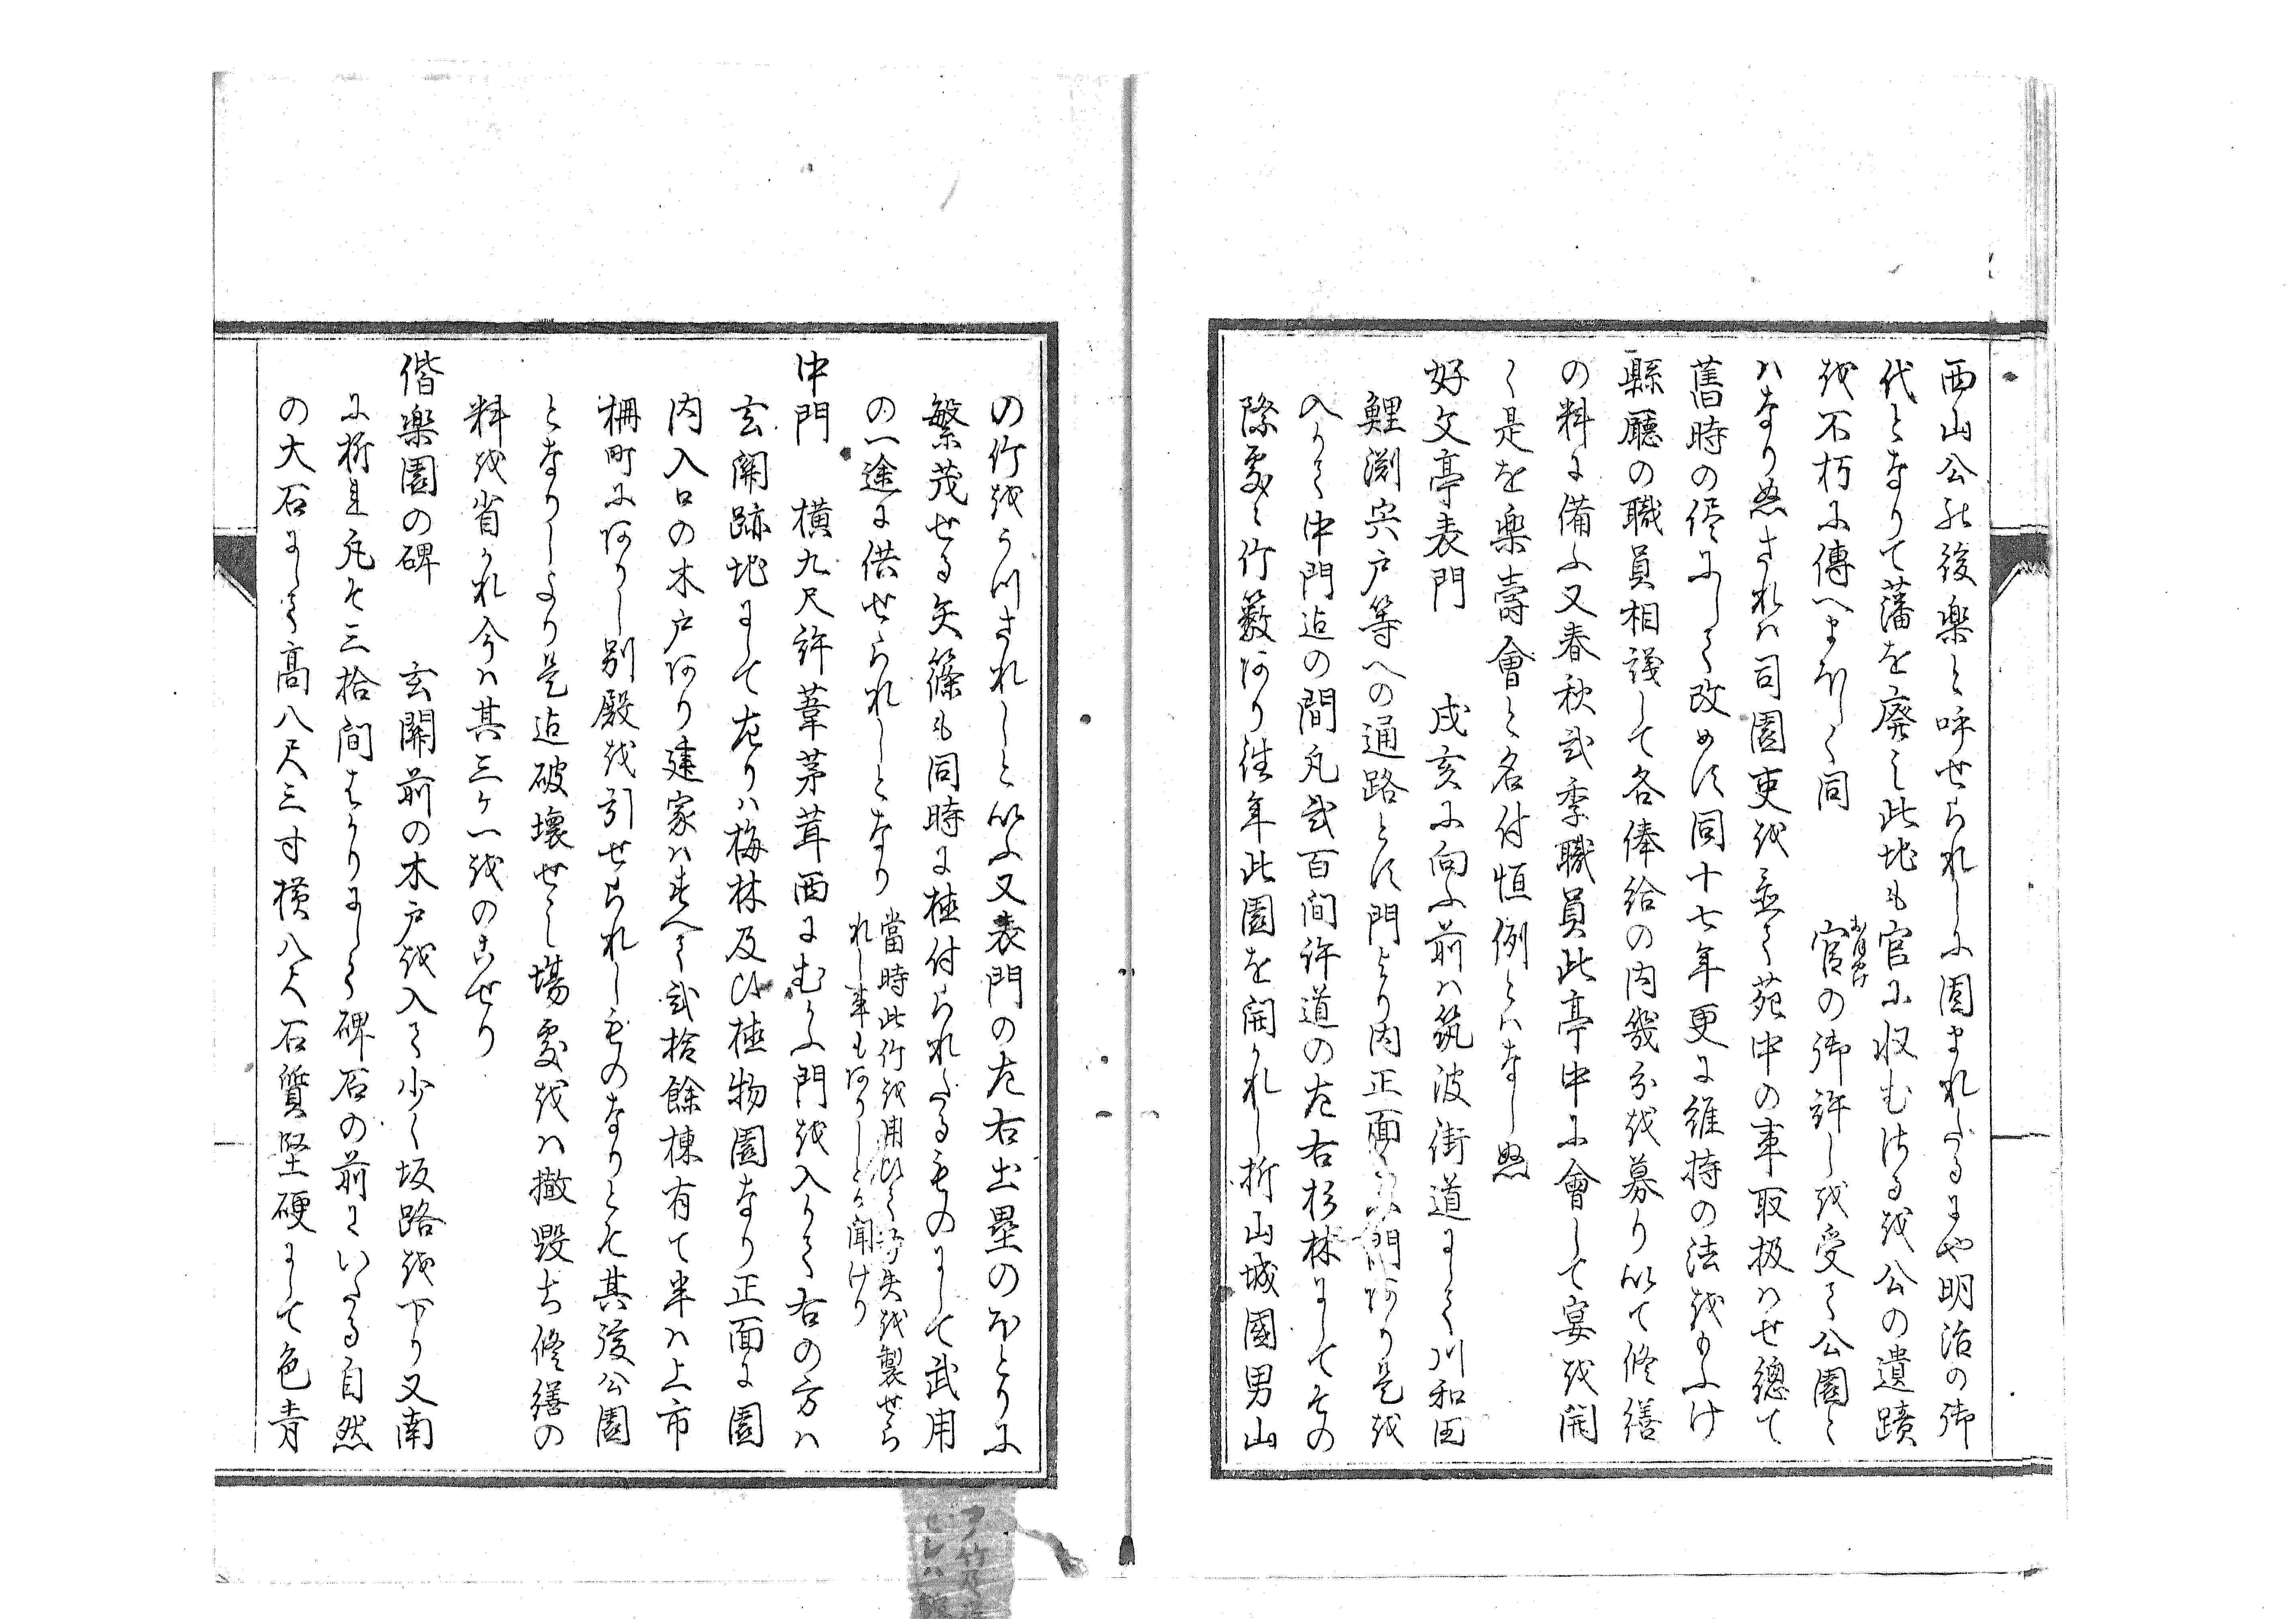 西山公の後楽と呼せられしに因まれたるにや明治の御
代となりて藩を廃し此地も官に収むはる越公の遺蹟
越不朽に傳へまほしく同　官の御許し越受て公園と
ハなりぬされハ司園吏越置て苑中の事取扱ハせ總て
舊時の儘にして改めす同十七年更に維持の法越もふけ
縣廳の職員相議して各俸給の内幾分越募り以て修繕
の料に備ふ又春秋弐季職員此亭中に會して宴越開
く是を楽壽會と名付恒例とハなしぬ
好文亭表門　戌亥に向ふ前ハ筑波街道にして川和田
鯉渕宍戸等への通路とす門より内正面に門あり是越
入りて中門迠の間凡弐百間許道の左右杉林にしてその
際處々竹藪あり往年此園を開かれし折山城國男山
の竹越うつされしと以ふ又表門の左右出塁のほとりに
繁茂せる矢篠も同時に植付られたるものにして武用
の一途に供せられしとなり
當時此竹越用ひて弓矢越製せら
れし事もありしとか聞けり
中門　横九尺許葦茅茸西にむかふ門越入りて右の方ハ
玄関跡地にして左りハ梅林及ひ植物園なり正面に園
内入口の木戸あり建家ハすへて弐拾餘棟有て半ハ上市
柵町にありし別殿越引せられしものなりとそ其後公園
となりしより是迠破壊せし場處越ハ撤毀ち修繕の
料越省かれ今ハ其三ヶ一越のこせり
偕楽園の碑　玄関前の木戸越入て少しく坂路越下り又南
に折里凡そ三拾間はかりにして碑石の前にいたる自然
の大石にして高八尺三寸横八尺石質堅硬にして色青